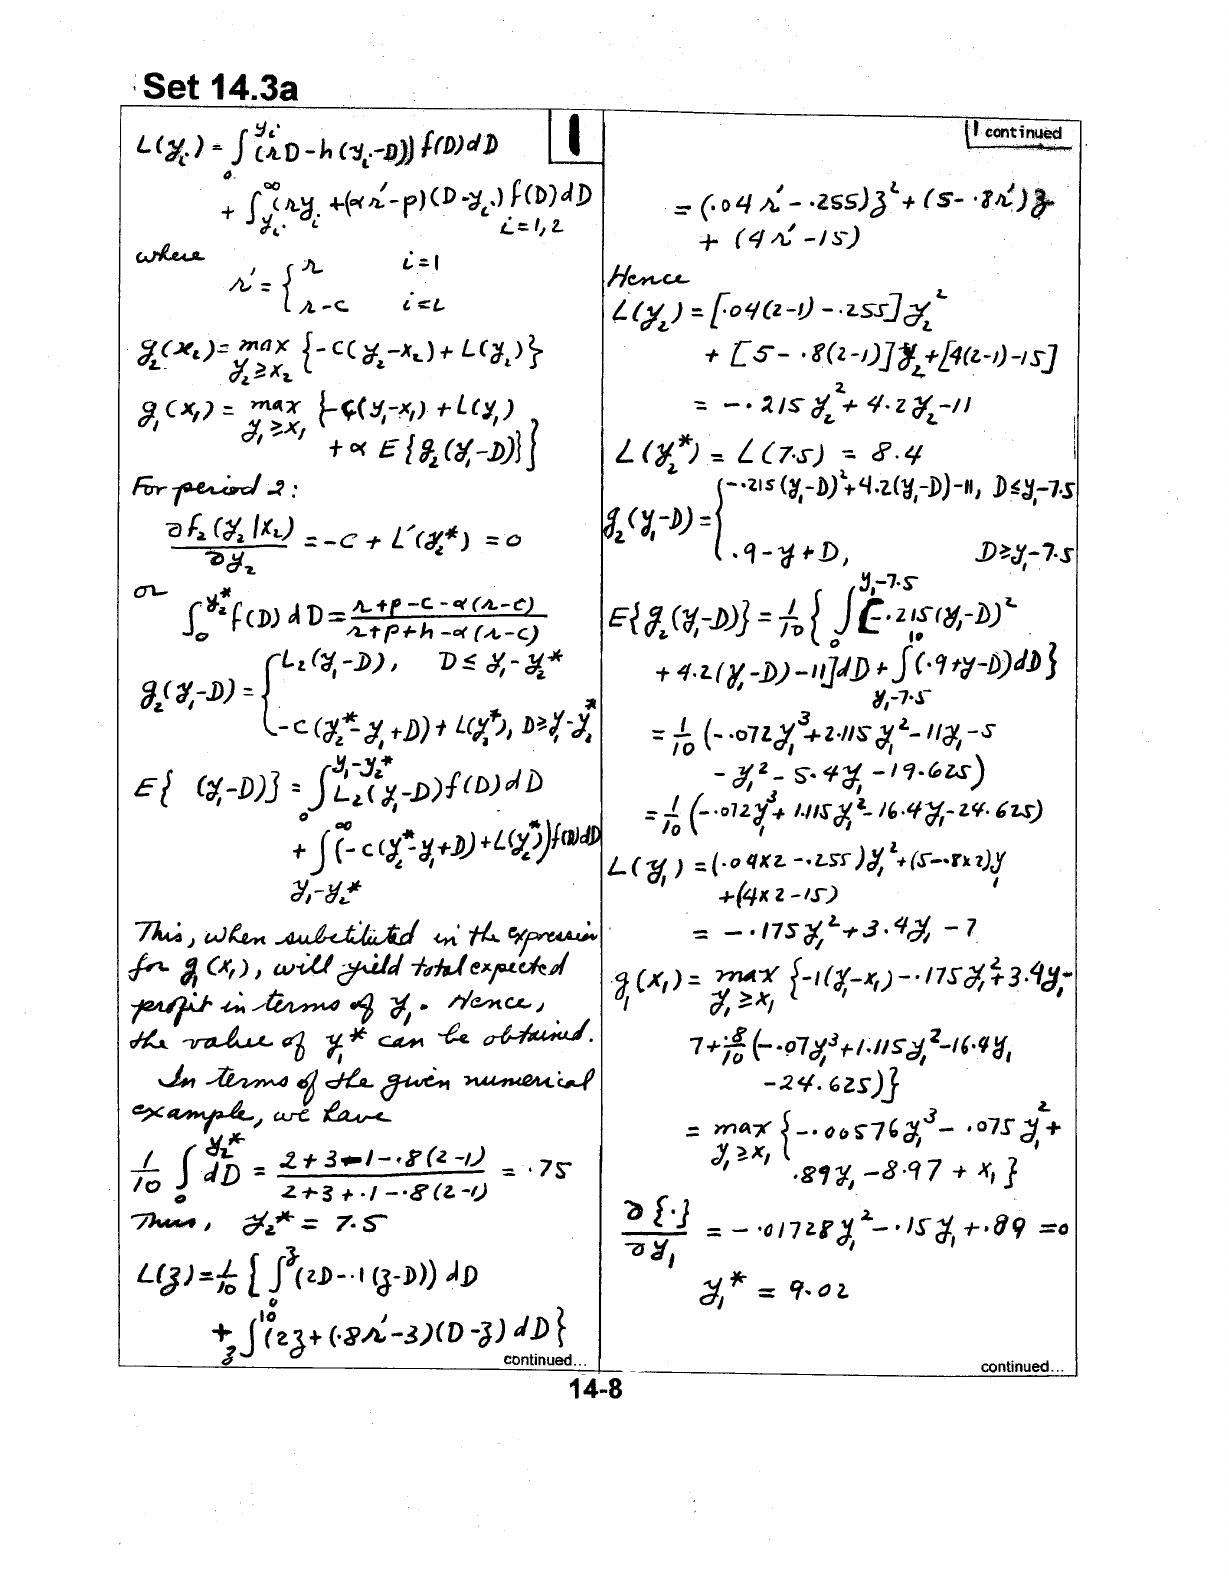 Set 14.3a
1
L(y_i) = ∫_0^{y_i} (rD - h(y_i-D)) f(D)dD
+ ∫_{y_i}^∞ (ry_i + (αr'-p)(D-y_i) f(D)dD
i=1,2
where
r' = { r i=1
r-c i=2
g_2(x_2) = max_{y_2≥x_2} {-c(y_2-x_2) + L(y_2)}
g_1(x_1) = max_{y_1≥x_1} {-c(y_1-x_1) + L(y_1)
+ α E{g_2(y_1-D)}}
For period 2:
∂f_2(y_2|x_2)/∂y_2 = -c + L'(y_2*) = 0
or
∫_0^{y_2*} f(D) dD = (r+p-c-α(r-c))/(r+p+h-α(r-c))
g_2(y_1-D) = { L_2(y_1-D), D ≤ y_1-y_2*
-c(y_2*-y_1+D) + L(y_2*), D≥y_1-y_2*
E{ (y_1-D)} = ∫_0^{y_1-y_2*} L_2(y_1-D) f(D) dD
+ ∫_{y_1-y_2*}^∞ (-c(y_2*-y_1+D) + L(y_2*)) f(D)dD
This, when substituted in the expression
for g_1(x_1), will yield total expected
profit in terms of y_1. Hence,
the value of y_1* can be obtained.
In terms of the given numerical
example, we have
1/10 ∫_0^{y_2*} dD = (2+3-1-.8(2-1))/(2+3+.1-.8(2-1)) = .75
Thus, y_2* = 7.5
L(z) = 1/10 { ∫_0^z (2D-.1(z-D)) dD
+ ∫_z^10 (2z+(.8r'-3)(D-z) dD}
continued...
1 continued
= (.04r' - .255)z² + (5-.8r')z
+ (4r'-15)
Hence
L(y_2) = [.04(2-1) - .255]y_2²
+ [5-.8(2-1)]y_2+[4(2-1)-15]
= -.215y_2² + 4.2y_2-11
L(y_2*) = L(7.5) = 8.4
g_2(y_1-D) = { -.215(y_1-D)²+4.2(y_1-D)-11, D≤y_1-7.5
.9-y+D, D≥y_1-7.5
E{g_2(y_1-D)} = 1/10 { ∫_0^{y_1-7.5} [-.215(y_1-D)²
+ 4.2(y_1-D)-11]dD + ∫_{y_1-7.5}^10 (.9+y-D)dD}
= 1/10 (-.072y_1³+2.115y_1²-11y_1-5
- y_1² - 5.4y_1 -19.625)
= 1/10 (-.072y_1³+1.115y_1²-16.4y_1-24.625)
L(y_1) = (.04x2-.255)y_1²+(5-.8x2)y_1
+(4x2-15)
= -.175y_1²+3.4y_1-7
g_1(x_1) = max_{y_1≥x_1} {-1(y_1-x_1)-.175y_1²+3.4y_1-
7+.8/10 (-.07y_1³+1.115y_1²-16.4y_1
-24.625)}
= max_{y_1≥x_1} {-.00576y_1³ - .075y_1²+
.89y_1-8.97+x_1}
∂{·}/∂y_1 = -.01728y_1²-.15y_1+.89 =0
y_1* = 9.02
continued...
14-8